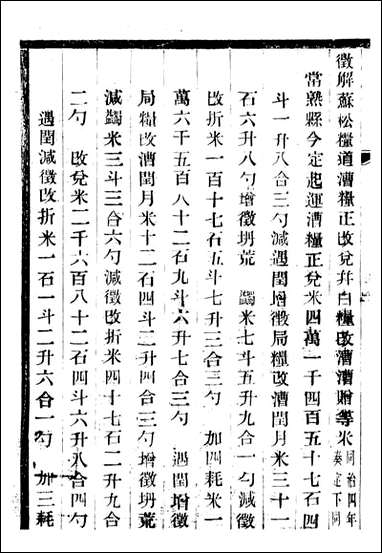 徵解蘇松糧道漕糧正改兌幷白糧改漕漕贈等米同治四年奏定下同
常熟縣今定起運漕糧正兌米四萬一千四百五十七石四
斗一升八合三勺減遇閏增徵局糧改漕閏月米三十一
石六升八勺增徵坍荒 蠲米七斗五升九合一勺減徵
改折米一百十七石五斗七升三合三勺 加四耗米一
萬六千五百八十二石九斗六升七合三勺 遇閏增徵
局糧改漕閏月米十二石四斗二升四合三勺增徵坍荒
減蠲米三斗三合六勺減徵改折米四十七石二升九合
二勺 改兌米二千六百八十二石四斗六升八合四勺
遇閏減徵改折米一石一斗二升六合一勺 加三耗